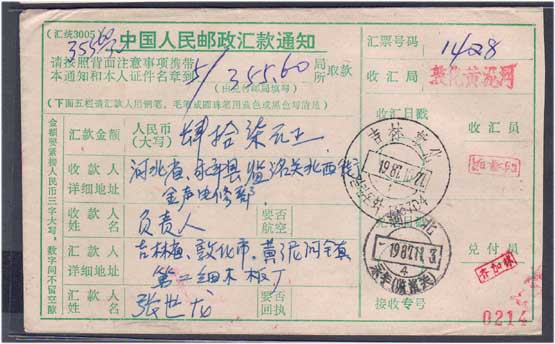 (汇统3005)
中国人民邮政汇款通知
355.60
请按照背面注意事项携带
本通知和本人证件名章到
5/355.60
局所
取款
(由兑付局填写)
(下面五栏请汇款人用钢笔、毛笔或圆珠笔用蓝色或黑色写清楚)
金额要紧接人民币三字大写,数字间不留空隙
汇款金额
人民币
(大写)
肆拾柒元正
收款人
详细地址
河北省、永年县临洺关北西街
金声电修部
收款人
姓名
负责人
要否
航空
汇款人
详细地址
吉林省、敦化市、黄泥河镇
第二细木板厂
汇款人
姓名
张世龙
要否
回执
汇票号码
1428
收汇局
敦化黄泥河
收汇日戳
收汇员
吉林敦化
1987.11.27
兑付日戳
兑付员
河北
1987.11.3
4
永年(临洺关)
齐加林
接收专号
0214